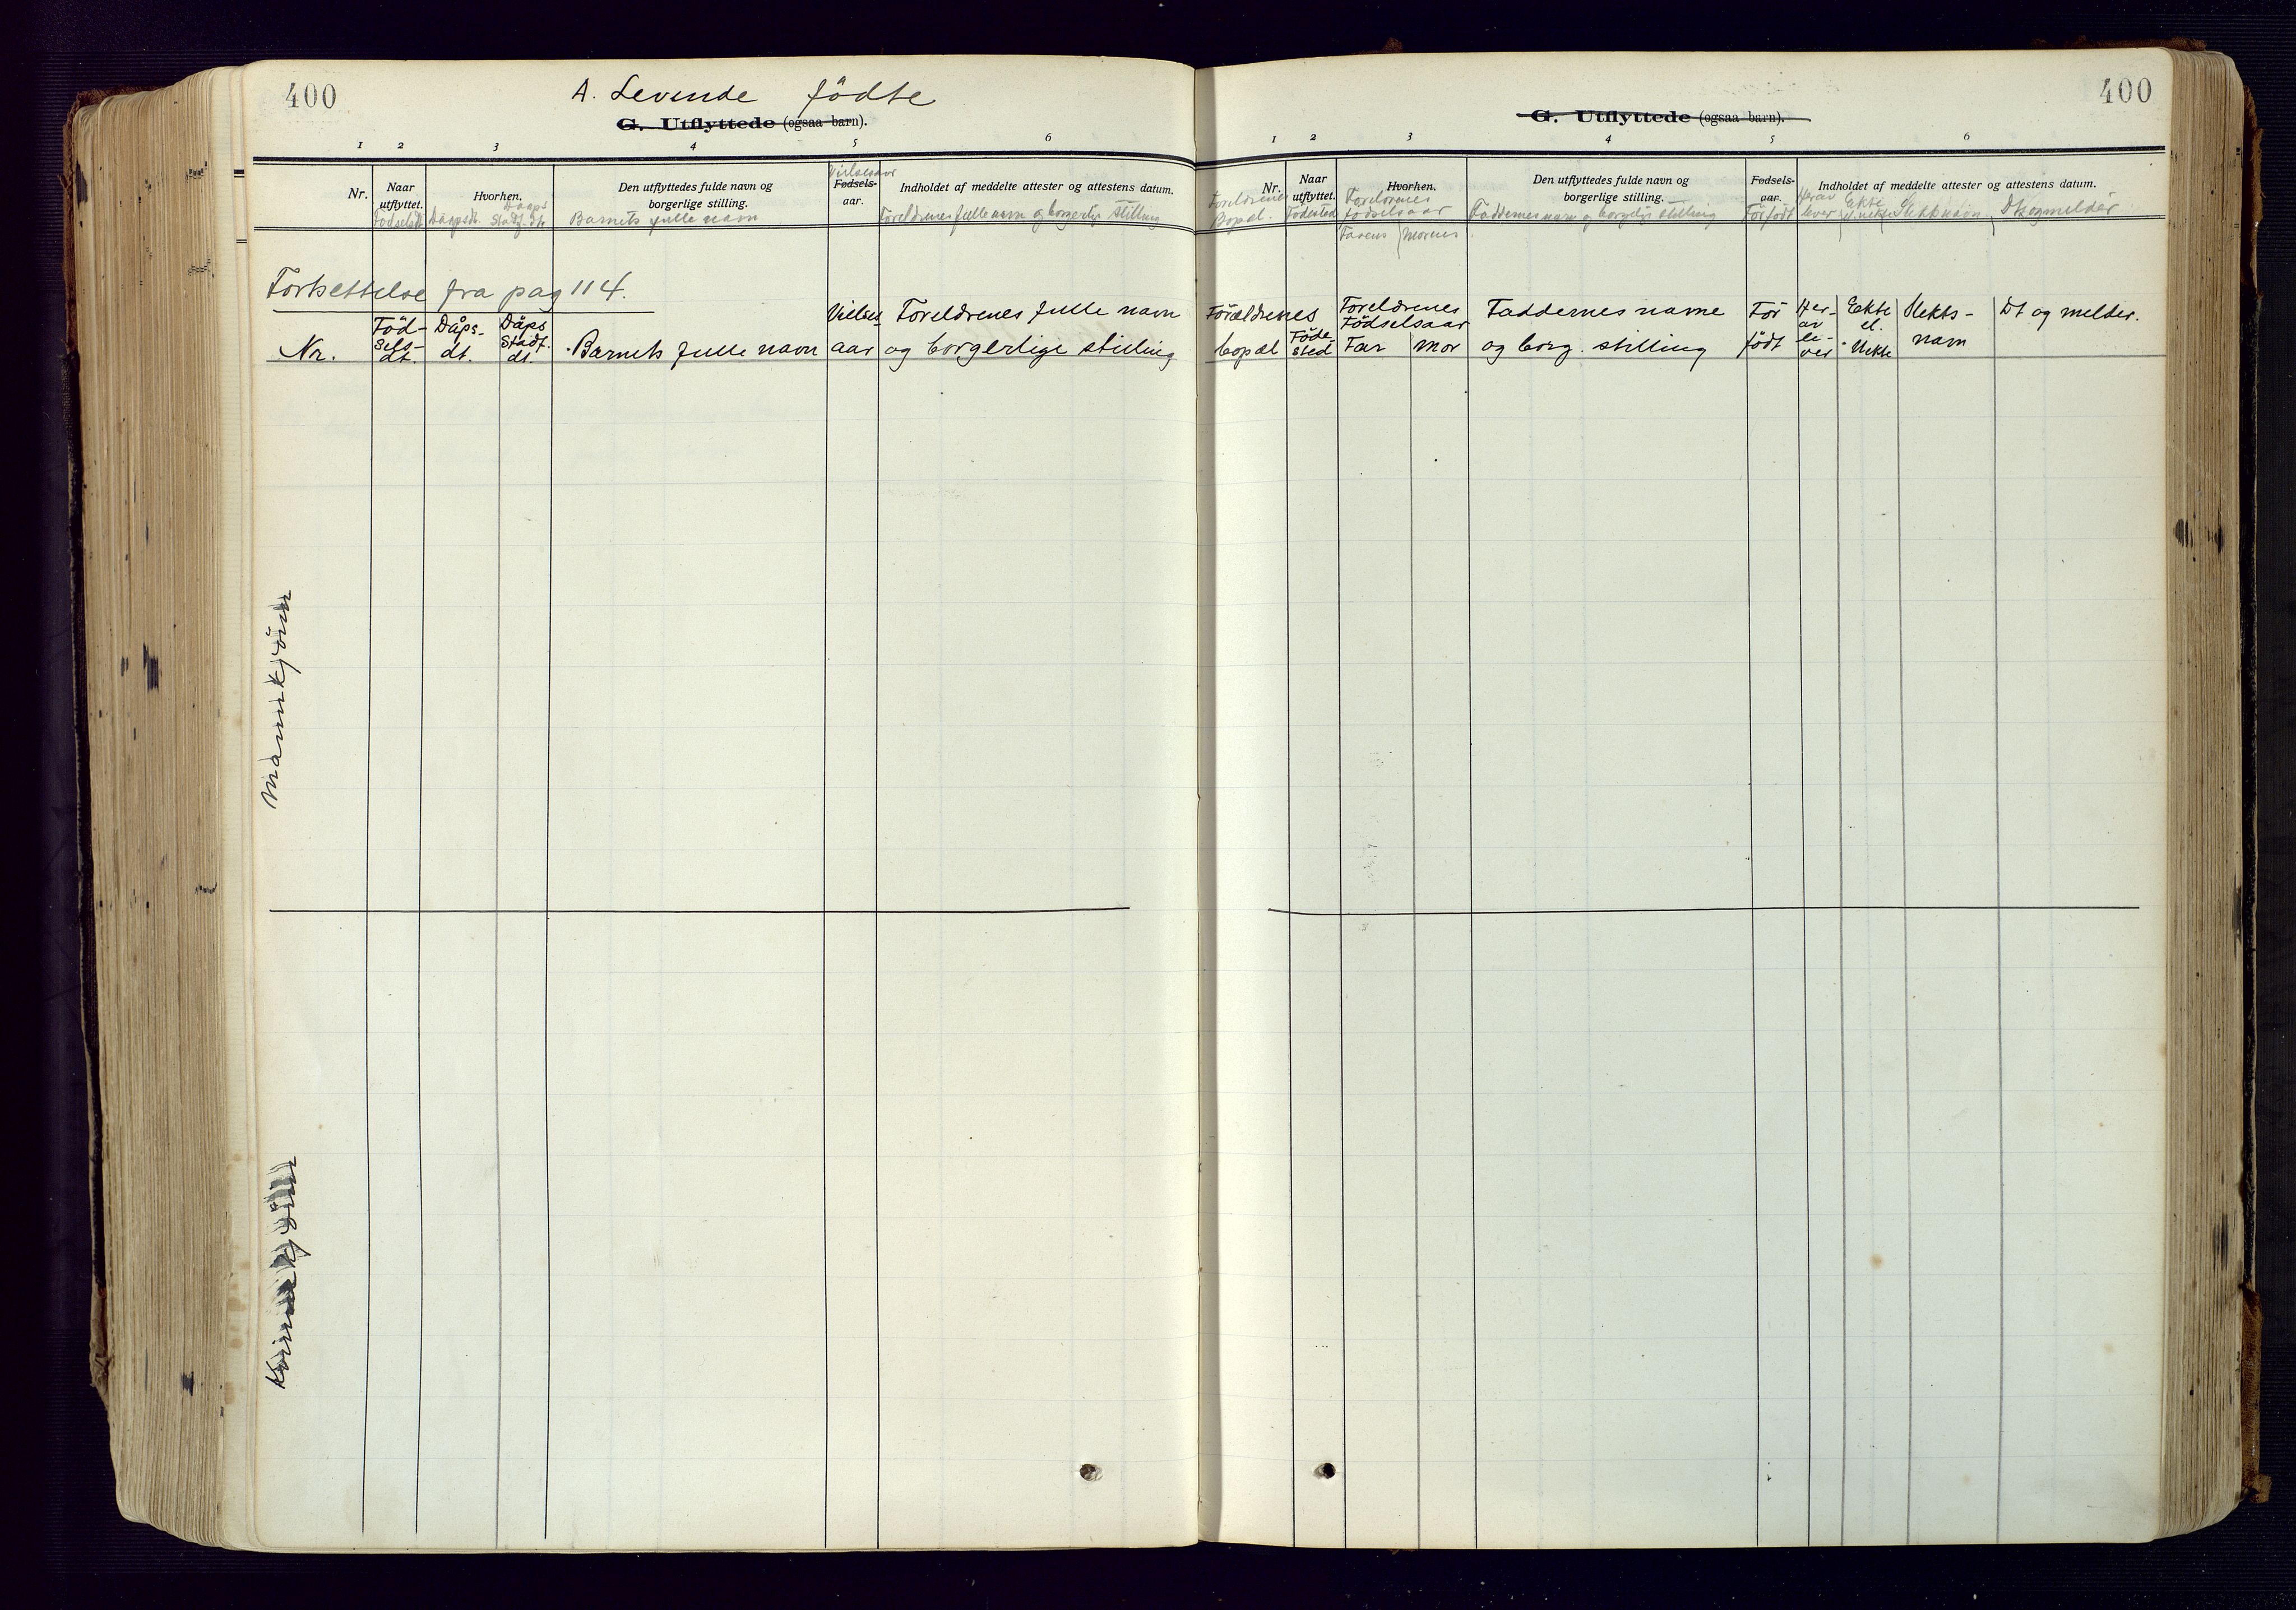 400
A. Levende fødte
G. Utflyttede (ogsaa barn).
1 2 3 4 5 6
Nr.
Naar utflyttet.
Fødselsdt.
Hvorhen.
Dåpsdt.
Dåps Stadf. dt.
Den utflyttedes fulde navn og borgerlige stilling.
Barnets fulle navn
Vielsesaar
Fødsels-aar.
Indholdet af meddelte attester og attestens datum.
Foreldrenes fulle navn og borgerlig stilling
Fortsettelse fra pag 114.
Nr.
Föd-
sels-
dt.
Dåps-
dt.
Dåps
Stadf.
dt.
Barnets fulle navn
Vielses
aar
Foreldrenes fulle navn
og borgerlige stilling
Mannkjönn
Kvinnekjönn
400
G. Utflyttede (ogsaa barn).
1 2 3 4 5 6
Nr.
Foreldrenes
Bopæl.
Naar utflyttet.
Födested
Hvorhen.
Foreldrenes
födselsaar
Farens Morens
Den utflyttedes fulde navn og borgerlige stilling.
Faddernes navn og borgerlig stilling
Fødsels-aar.
Förfödt
Indholdet af meddelte attester og attestens datum.
Herav
lever
Ekte
Slektsnavn
Dt og melder
Forældrenes
bopæl
Föde-
sted
Foreldrenes
Födselsaar
Far mor
Faddernes navne
og borg. stilling
För
födt
Her-
av
le-
ver
Ekte
el.
Uekte
Slekts-
navn
Dt og melder.